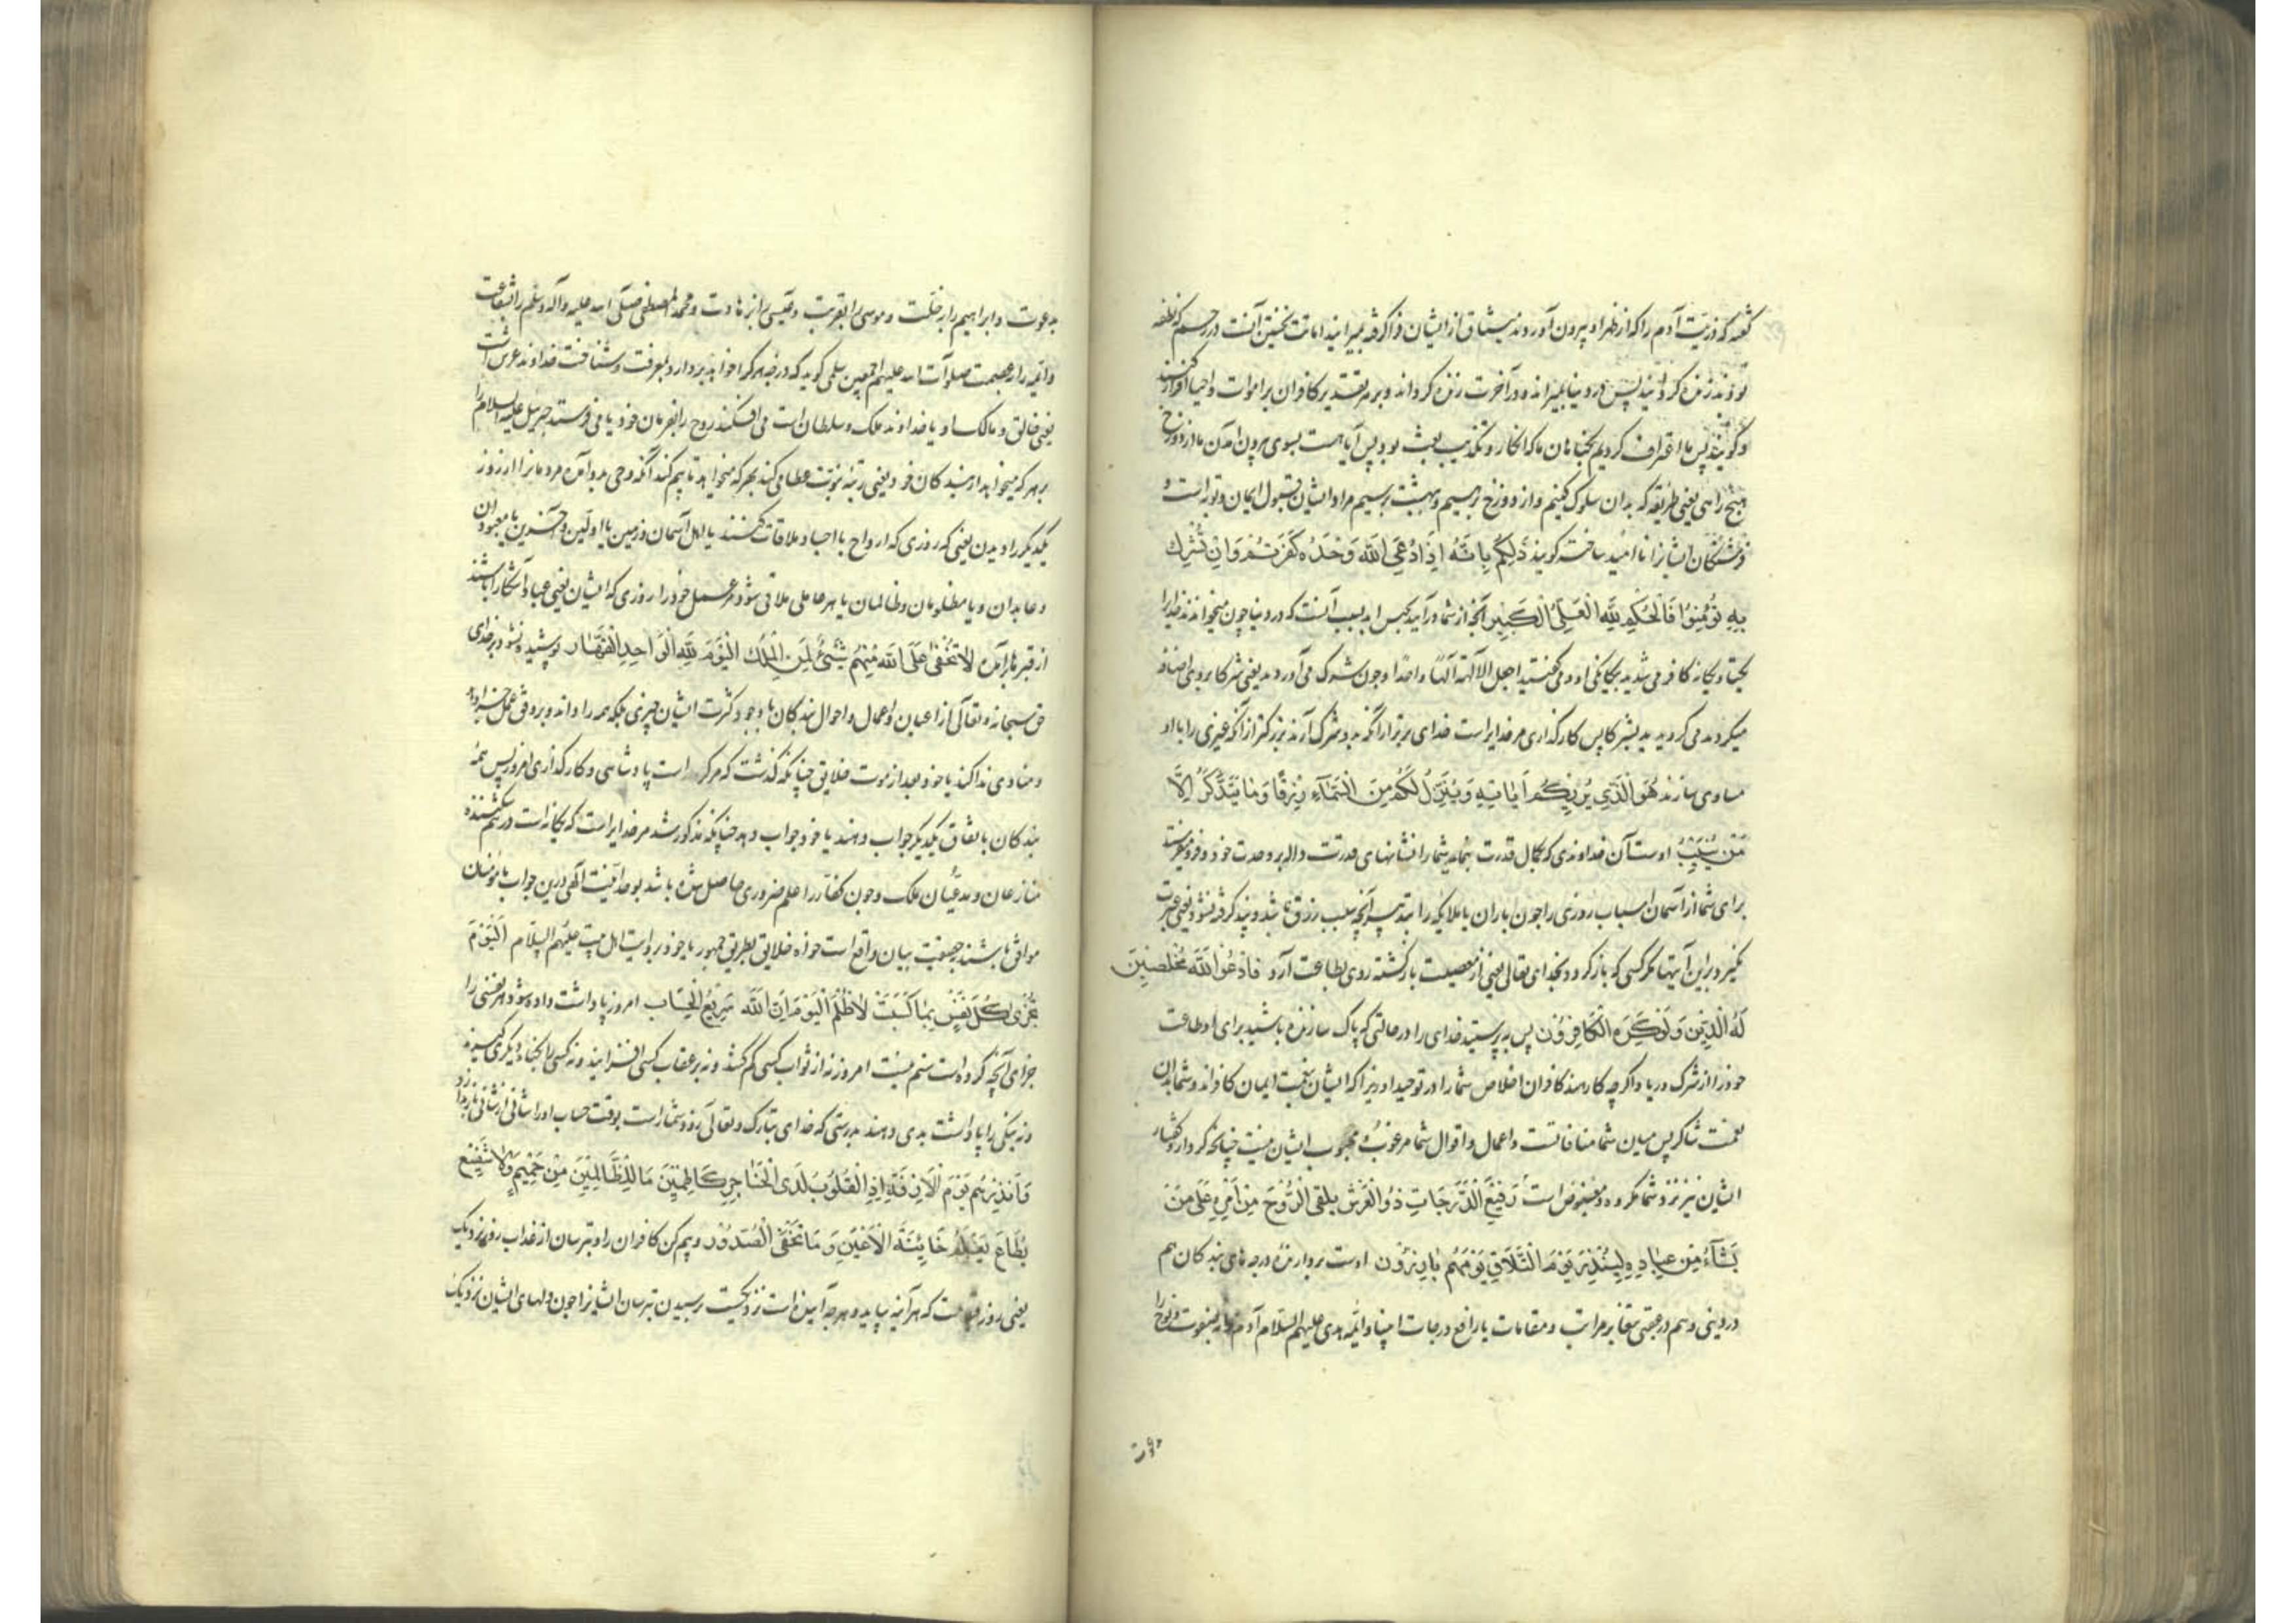 گفته که ذریت آدم را که از ظهر او بیرون آوردند میثاق از ایشان فرا گرفته بمیرانید اماتت نخستین آنست در رحم که نطفه
بودند زنده گردانید پس در دنیا بمیراند و در آخرت زنده گرداند و بر هر تقدیر کافران بر اموات و احیا اقرار کنند
و گویند پس ما اعتراف کردیم بگناهان ما که انکار و تکذیب بعث بود پس آیا هست بسوی بیرون آمدن ما از دوزخ
هیچ راهی یعنی طریقه که بدان سلوک کنیم و از دوزخ برهیم و ببهشت برسیم مراد ایشان قبول ایمان و توبه است و
فرشتگان ایشانرا ناامید ساخته گویند ذَلِکُم بِاَنَّهُ اِذَا دُعِیَ اللّٰه وَحْدَهُ کَفَرْتُم وَاِنْ یُشْرَك
بِهِ تُؤْمِنُوا فَالْحُکْمُ لِلّٰهِ الْعَلِیِّ الْکَبِیرِ آنچه از شما درآید بحبس ابد بسبب آنست که در دنیا چون میخواندند خدایرا
یکتا و یگانه کافر می شدید بیگانگی او و می گفتید اجعل الآلهة الها واحدا و چون شرک می آوردند یعنی شرکا بروی اضافه
میکردند می گرویدید بشرکا پس کارگذاری مر خدایراست خدای برتر از آنکه بدو شرک آرند بزرگتر از آنکه غیری را با او
مساوی سازند هُوَ الَّذِی یُرِیکُم اٰیَاتِهِ وَیُنَزِّلُ لَکُم مِنَ السَّمَآءِ رِزْقًا وَمَا یَتَذَکَّرُ اِلَّا
مَن یُنِیبُ اوست آن خداوندی که بکمال قدرت بنماید شما را نشانهای قدرت داله بر وحدت خود و فرو میفرستد
برای شما از آسمان اسباب روزی را چون باران یا ملائکه را بتدبیر آنچه سبب رزق باشد و پند گرفته نشود یعنی عبرت
نگیرد براین آیتها مگر کسی که باز گردد بخدای تعالی یعنی از معصیت بازگشته روی بطاعت آرد فَادْعُوا اللّٰهَ مُخْلِصِینَ
لَهُ الدِّینَ وَلَوْ کَرِهَ الْکَافِرُونَ پس بپرستید خدای را در حالتی که پاک سازنده باشید برای او طاعت
خود را از شرک و ریا و اگرچه کارهند کافران اخلاص شما را در توحید او زیرا که ایشان بنعمت ایمان کافراند و شما بدان
نعمت شاکر پس میان شما منافاتست و اعمال و اقوال شما مرغوب و محبوب ایشان نیست چنانچه کردار و گفتار
ایشان نیز نزد شما مکروه و مبغوض است رَفِیعُ الدَّرَجَاتِ ذُو الْعَرْشِ یُلْقِی الرُّوحَ مِنْ اَمْرِهِ عَلَی مَنْ
یَشَآءُ مِنْ عِبَادِهِ لِیُنْذِرَ یَوْمَ التَّلَاقِ یَوْمَ هُم بَارِزُونَ اوست بردارنده درجه های بندگان هم
در دنیی و هم در عقبی بتفاوت مراتب و مقامات یا رافع درجات انبیا و ائمه هدی علیهم السلام آدم را بصفوت و نوح را
بدعوت و ابراهیم را بر خلت و موسی را بقربت و عیسی را بزهادت و محمد المصطفی صلی الله علیه و آله و سلم را بشفاعت
و ائمه را بعصمت صلوات الله علیهم اجمعین سلمی گوید که درجه هر کرا خواهد بردارد بمعرفت و شناخت خداوند عرش است
یعنی خالق و مالک او یا خداوند ملک و سلطان است می افکند روح را بفرمان خود یا می فرستد جبریل علیه السلام را
بر هر که میخواهد از بندگان خود یعنی رتبهٔ نبوت عطا می کند بهر که میخواهد تا بیم کند آنکه وحی بدو آمده مردمانرا از روز
یکدیگر را دیدن یعنی که روزی که ارواح با اجساد ملاقات کنند یا اهل آسمان و زمین یا اولین و آخرین یا معبودان
و عابدان و یا مظلومان و ظالمان یا هر عاملی ملاقی شود مر عمل خود را روزی که ایشان یعنی عباد آشکارا باشند
از قبرها برآمده لَا یَخْفَی عَلَی اللّٰهِ مِنْهُمْ شَیْءٌ لِمَنِ الْمُلْكُ الْیَوْمَ لِلّٰهِ الْوَاحِدِ الْقَهَّارِ پوشیده نشود بر خدای
حق سبحانه و تعالی از اعیان و اعمال و احوال بندگان با وجود کثرت ایشان چیزی بلکه همه را داند و بر وفق عمل جزا دهد
و منادی ندا کند یا خود بعد از موت خلایق چنانکه گذشت که مر کراست پادشاهی و کارگذاری امروز پس همه
بندگان باتفاق یکدیگر جواب دهند یا خود جواب دهد چنانکه مذکور شد مر خدایراست که یگانه است در هم شکننده
منازعان و مدعیان ملک و چون کفار را علم ضروری حاصل شده باشد بوحدانیت الهی درین جواب با مؤمنان
موافق باشند بیان واقع است خواه خلایق بطریق جمهور یا خود بروایت اهل بیت علیهم السلام اَلْیَوْمَ
تُجْزَی کُلُّ نَفْسٍ بِمَا کَسَبَتْ لَا ظُلْمَ الْیَوْمَ اِنَّ اللّٰهَ سَرِیعُ الْحِسَاب امروز پاداشت داده شود هر نفسی را
جزای آنچه کرده است ستم نیست امروز نه از ثواب کسی کم کند و نه بر عقاب کسی افزایند و نه کسی را بگناه دیگری گیرند
و نه نیکی را پاداشت بدی دهند بدرستی که خدای تبارک و تعالی زود شمار است بوقت حساب او را شانی از شانی باز ندارد
فَاَنْذِرْهُمْ یَوْمَ الْاٰزِفَةِ اِذِ الْقُلُوبُ لَدَی الْحَنَاجِرِ کَاظِمِینَ مَا لِلظَّالِمِینَ مِنْ حَمِیمٍ وَلَا شَفِیعٍ
یُطَاعُ یَعْلَمُ خَائِنَةَ الْاَعْیُنِ وَمَا تُخْفِی الصُّدُورُ و بیم کن کافران را و بترسان از عذاب روز نزدیک
یعنی روز قیامت که هر آینه بیاید و هر چه آینده است نزدیکست رسیدن بترسان ایشانرا چون دلهای ایشان نزدیک